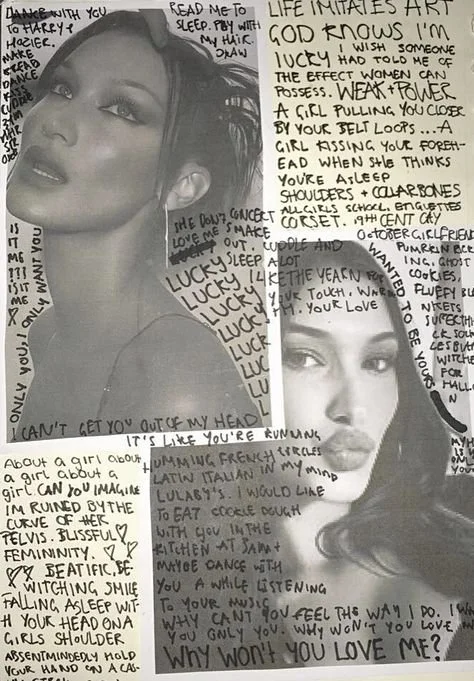 DANCE WITH YOU
TO HARRY &
HOZIER.
MAKE
BREAD
DANCE
KISS
CUDDLE
READ ME TO
SLEEP. PLAY WITH
MY HAIR.
DRAW
LIFE IMITATES ART
GOD KNOWS I'M
LUCKY I WISH SOMEONE
HAD TOLD ME OF
THE EFFECT WOMEN CAN
POSSESS. WEAK + POWER
A GIRL PULLING YOU CLOSER
BY YOUR BELT LOOPS....A
GIRL KISSING YOUR FOREH-
EAD WHEN SHE THINKS
YOU'RE ASLEEP
SHOULDERS + COLLARBONES
ALL GIRLS SCHOOL. ETIQUETTES
CORSET. 19TH CENT
IS
IT
ME
???
IS IT
ME
ONLY YOU, I ONLY WANT YOU
SHE DON'T CONCERT
LOVE ME'S MAKE
OUT. CUDDLE AND
SLEEP A LOT
I LIKE THE YEARN FOR
YOUR TOUCH. WARM
TH. YOUR LOVE
LUCKY
LUCKY
LUCKY
LUCKY
LUCK
LUC
LU
L
OCTOBER GIRLFRIEND
PUMPKIN
ING. GHOST
COOKIES,
FLUFFY BLA
NKETS
WITCHES
FOR
HALL
WANTED TO BE YOURS
I CAN'T GET YOU OUT OF MY HEAD
IT'S LIKE YOU'RE RUNNING
CIRCLES
IN MY MIND
HUMMING FRENCH
LATIN ITALIAN
LULABY'S. I WOULD LIKE
TO EAT COOKIE DOUGH
WITH YOU IN THE
KITCHEN AT 3AM +
MAYBE DANCE WITH
YOU A WHILE LISTENING
TO YOUR MUSIC
WHY CANT YOU FEEL THE WAY I DO. I
YOU ONLY YOU. WHY WON'T YOU LOVE
WHY WON'T YOU LOVE ME?
About a girl about
a girl about a
girl. CAN YOU IMAGINE
IM RUINED BY THE
CURVE OF HER
PELVIS. BLISSFUL
FEMININITY.
BEATIFIC, BE-
WITCHING SMILE
FALLING ASLEEP WIT-
H YOUR HEAD ON A
GIRLS SHOULDER
ABSENTMINDEDLY HOLD
YOUR HAND ON A